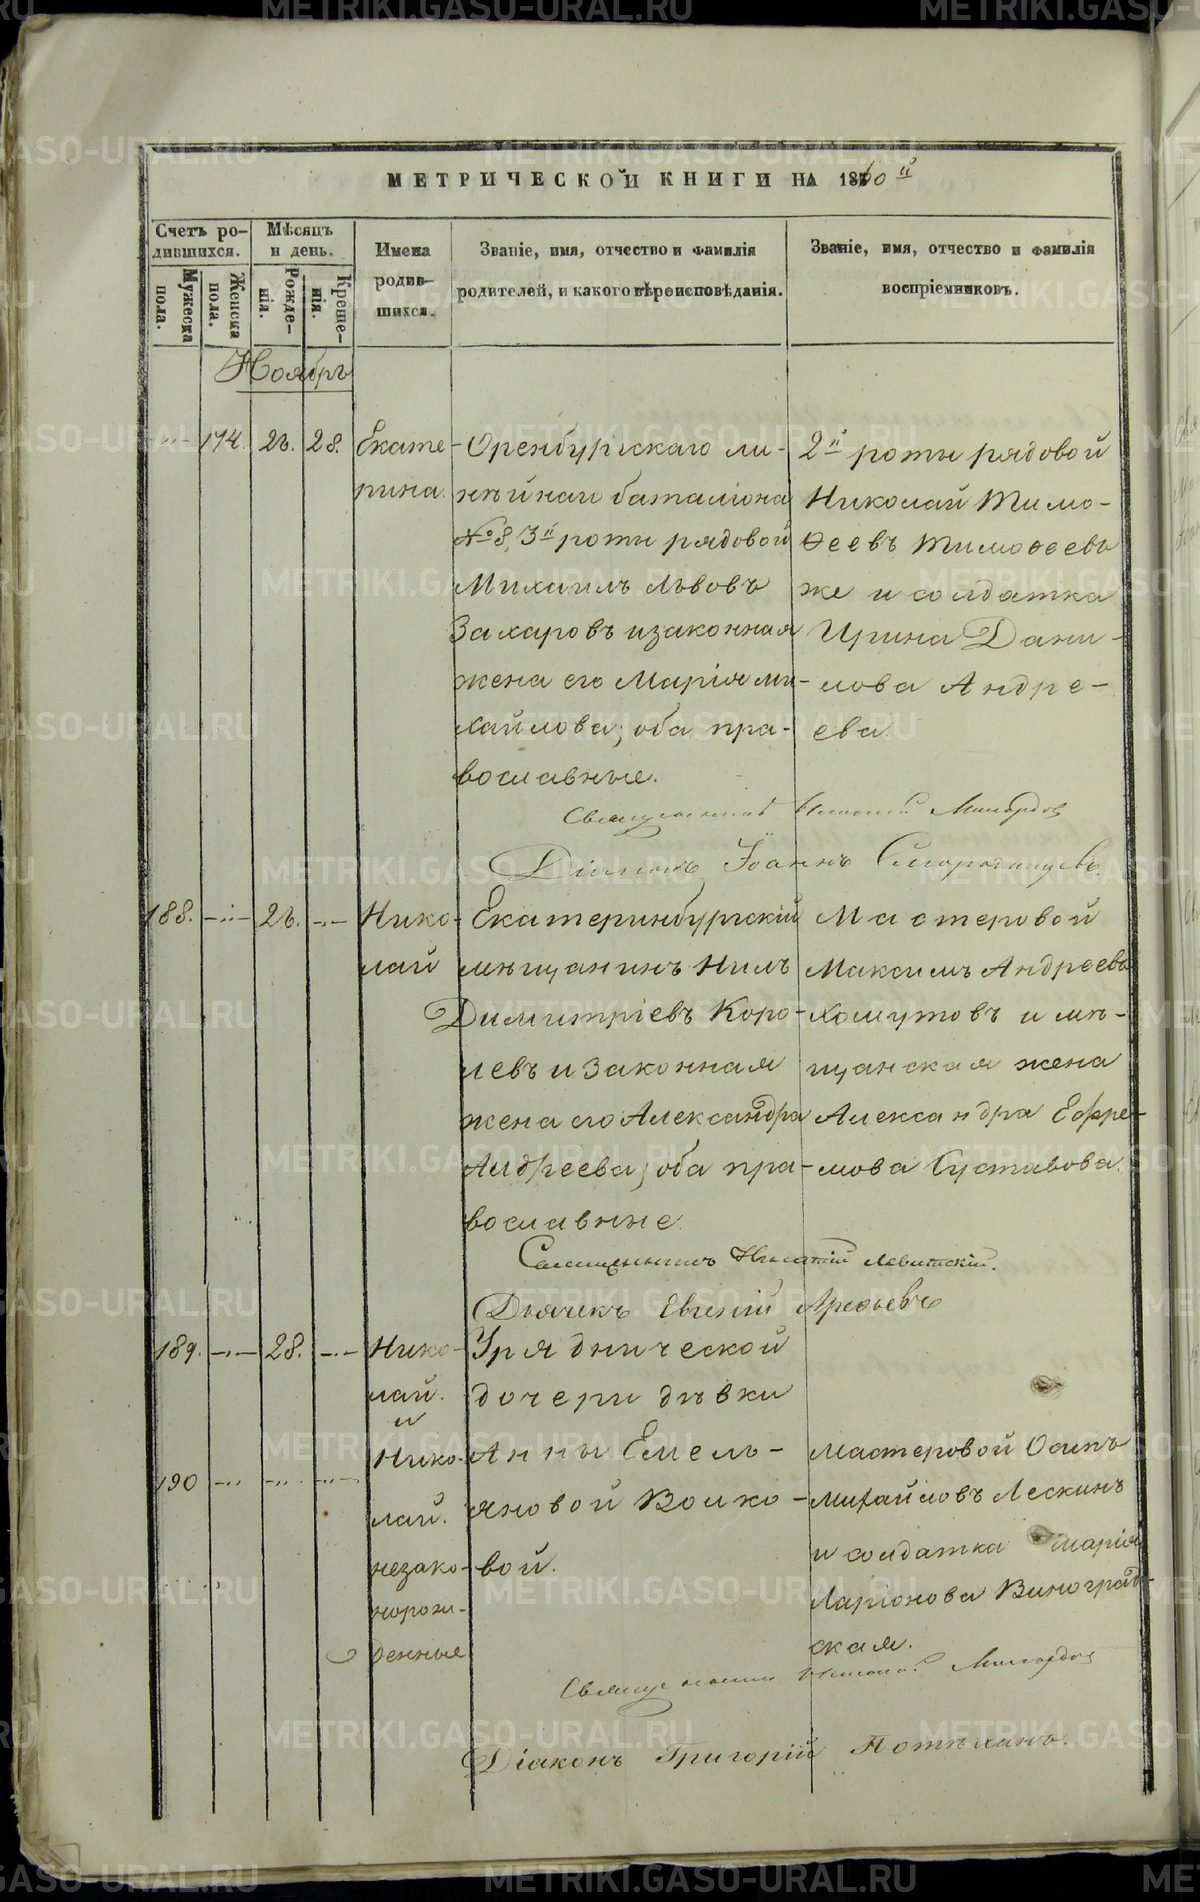 МЕТРИЧЕСКОЙ КНИГИ НА 1860й
Счетъ ро-
дившихся.
Мѣсяцъ
и день.
Мужеска
пола.
Женска
пола.
Рожде-
нія.
Креще-
нія.
Имена
родив-
шихся.
Званіе, имя, отчество и фамилія
родителей, и какого вѣроисповѣданія.
Званіе, имя, отчество и фамилія
воспріемниковъ.
Ноябрь
174. 26. 28. Екате-
рина.
Оренбургскаго ли-
нѣйнаго баталіона
№8, 3й роты рядовой
Михаилъ Львовъ
Захаровъ и законная
жена его Марія Ми-
хайлова; оба пра-
вославные.
2й роты рядовой
Николай Тимо-
ѳеевъ Тимоѳеевъ
же и солдатка
Ирина Дани-
лова Андре-
ева.
Священникъ
Діаконъ Іоаннъ Смородинцевъ.
188. 26. Нико-
лай
Екатеринбургскій
мѣщанинъ Нилъ
Димитріевъ Коро-
левъ и законная
жена его Александра
Андреева; оба пра-
вославные.
Мастеровой
Максимъ Андреевъ
Хомутовъ и мѣ-
щанская жена
Александра Ефре-
мова Суставова.
Священникъ Игнатій Левитскій.
Дьячекъ Евгеній Арефьевъ
189. 28. Нико-
лай.
и
190 Нико-
лай.
незако-
норож-
денные
Уряднической
дочери дѣвки
Анны Емель-
яновой Волко-
вой.
мастеровой Осипъ
Михайловъ Лескинъ
и солдатка Марія
Ларіонова Виноград-
ская.
Священникъ
Діаконъ Григорій Потѣхинъ.
METRIKI.GASO-URAL.RU